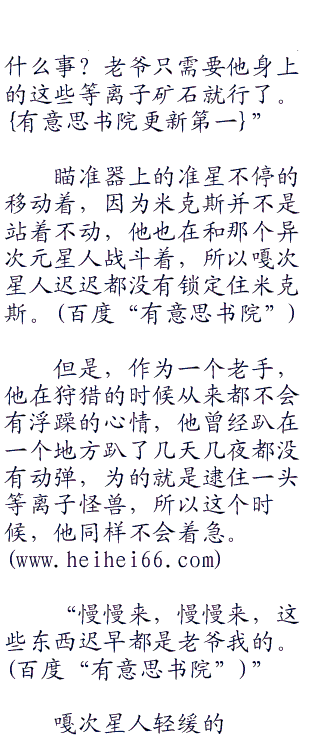 什么事？老爷只需要他身上
的这些等离子矿石就行了。
{有意思书院更新第一}”
瞄准器上的准星不停的
移动着，因为米克斯并不是
站着不动，他也在和那个异
次元星人战斗着，所以嘎次
星人迟迟都没有锁定住米克
斯。(百度“有意思书院”)
但是，作为一个老手，
他在狩猎的时候从来都不会
有浮躁的心情，他曾经趴在
一个地方趴了几天几夜都没
有动弹，为的就是逮住一头
等离子怪兽，所以这个时
候，他同样不会着急。
(www.heihei66.com)
“慢慢来，慢慢来，这
些东西迟早都是老爷我的。
(百度“有意思书院”)”
嘎次星人轻缓的